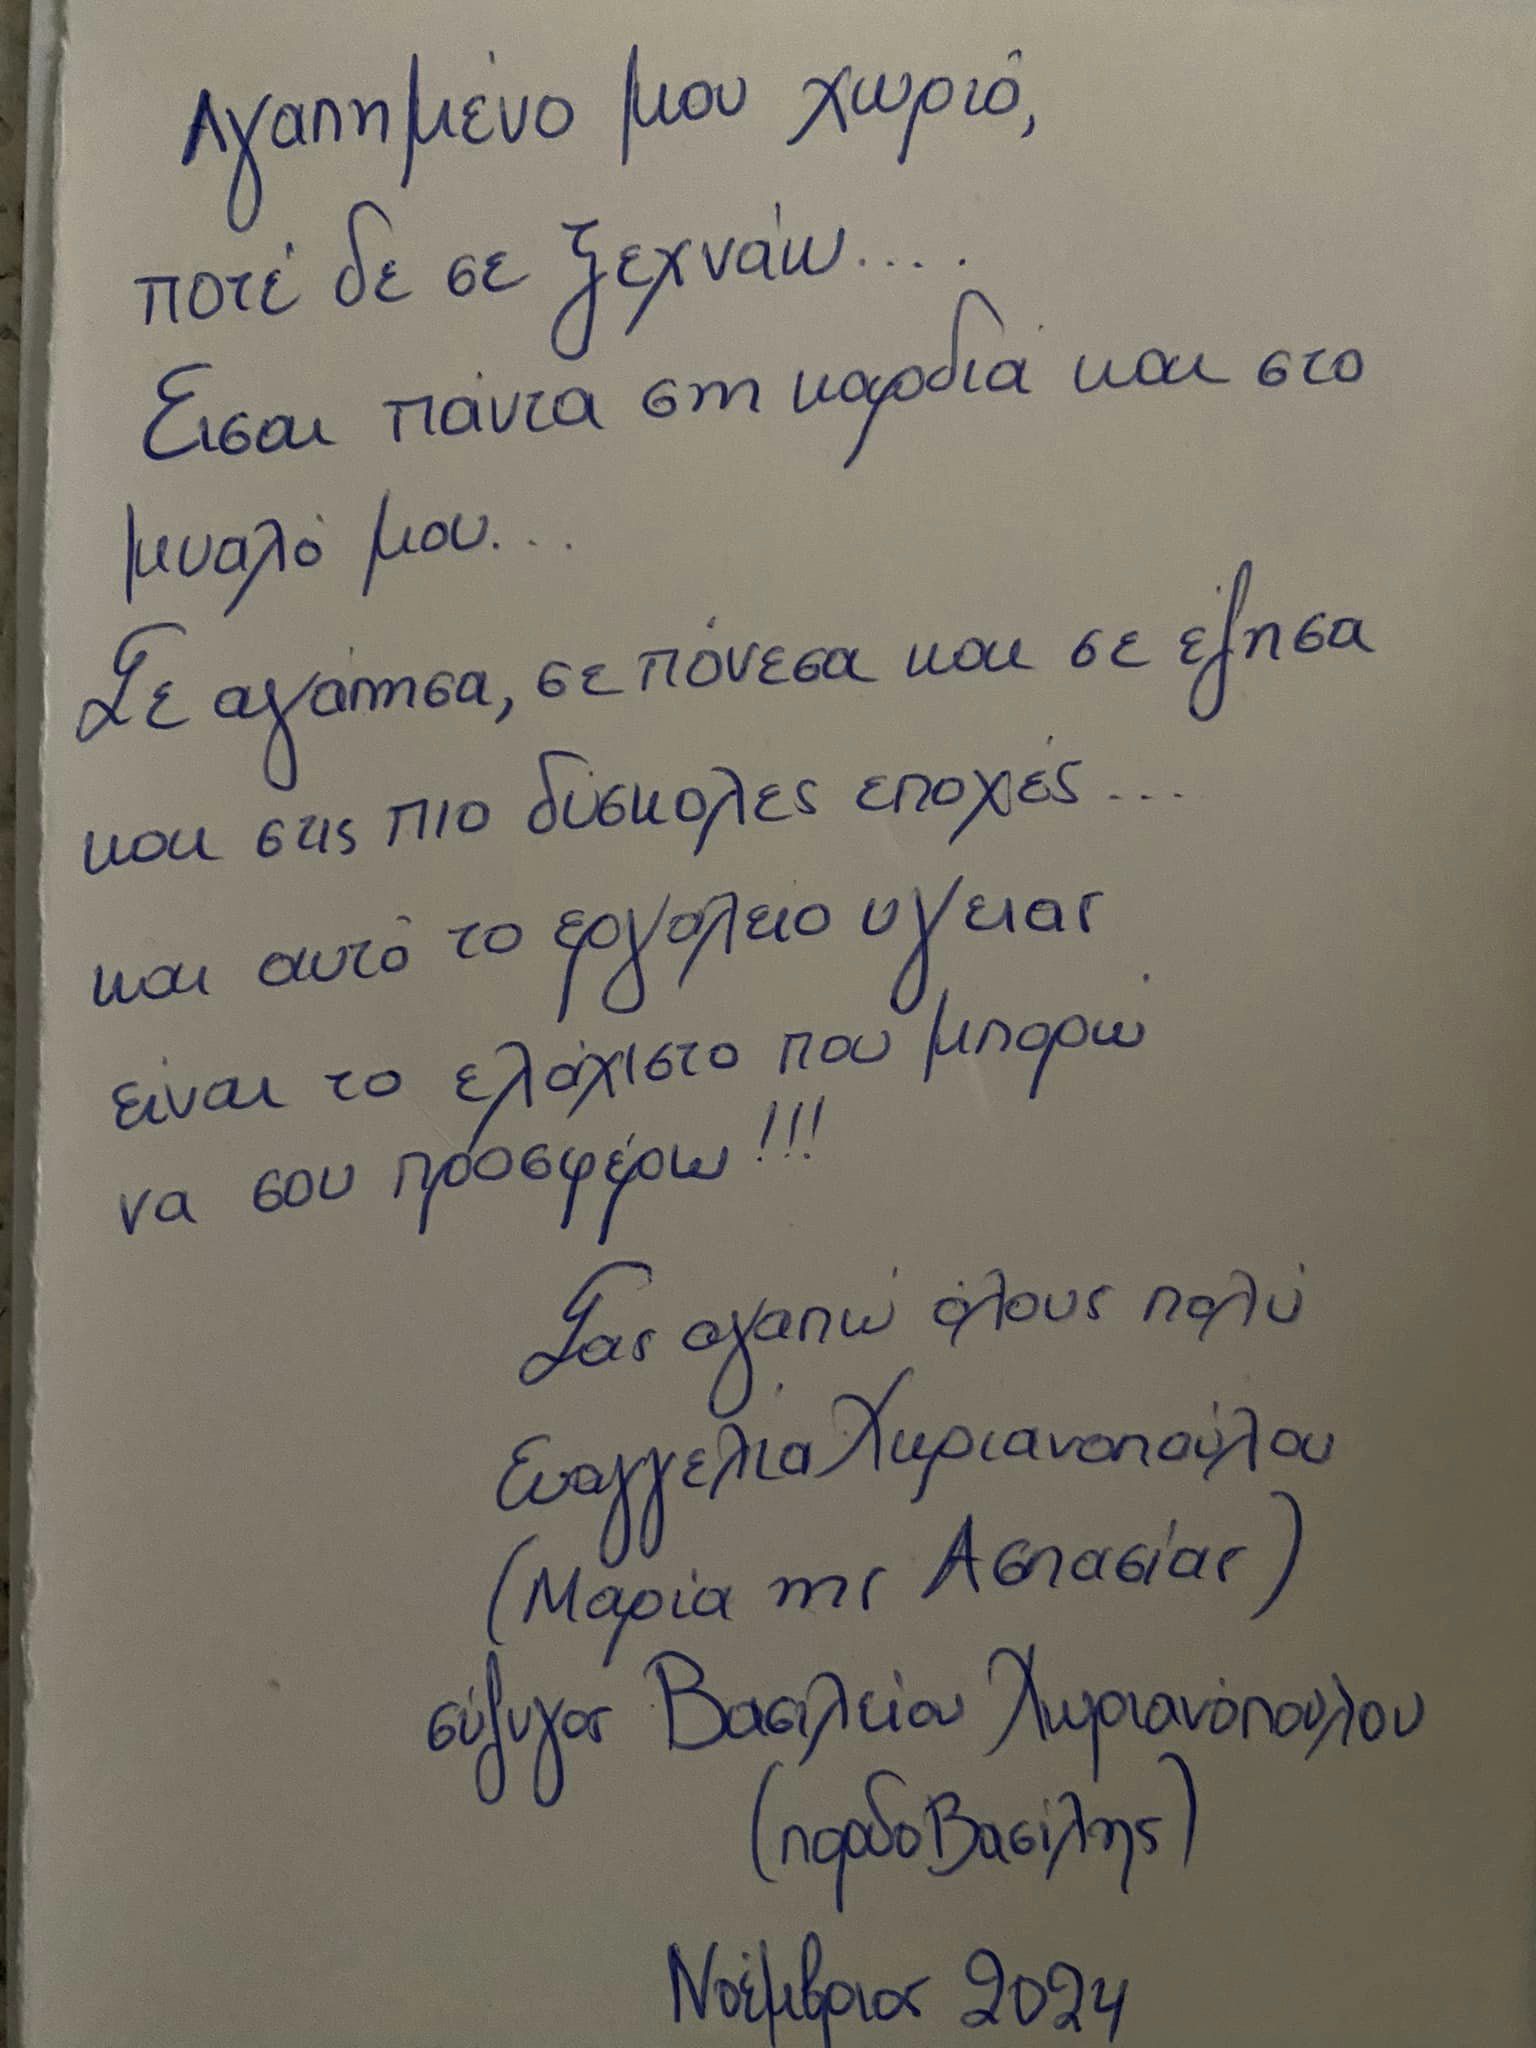 Αγαπημένο μου χωριό,
ποτέ δε σε ξεχνάω....
Είσαι πάντα στη καρδιά και στο
μυαλό μου...
Σε αγάπησα, σε πόνεσα και σε έζησα
και στις πιο δύσκολες εποχές...
και αυτό το εργαλείο υγείας
είναι το ελάχιστο που μπορώ
να σου προσφέρω!!!
Σας αγαπώ όλους πολύ
Ευαγγελία Χωριανοπούλου
(Μαρία της Ασπασίας)
σύζυγος Βασιλείου Χωριανόπουλου
(παρδοΒασίλης)
Νοέμβριος 2024